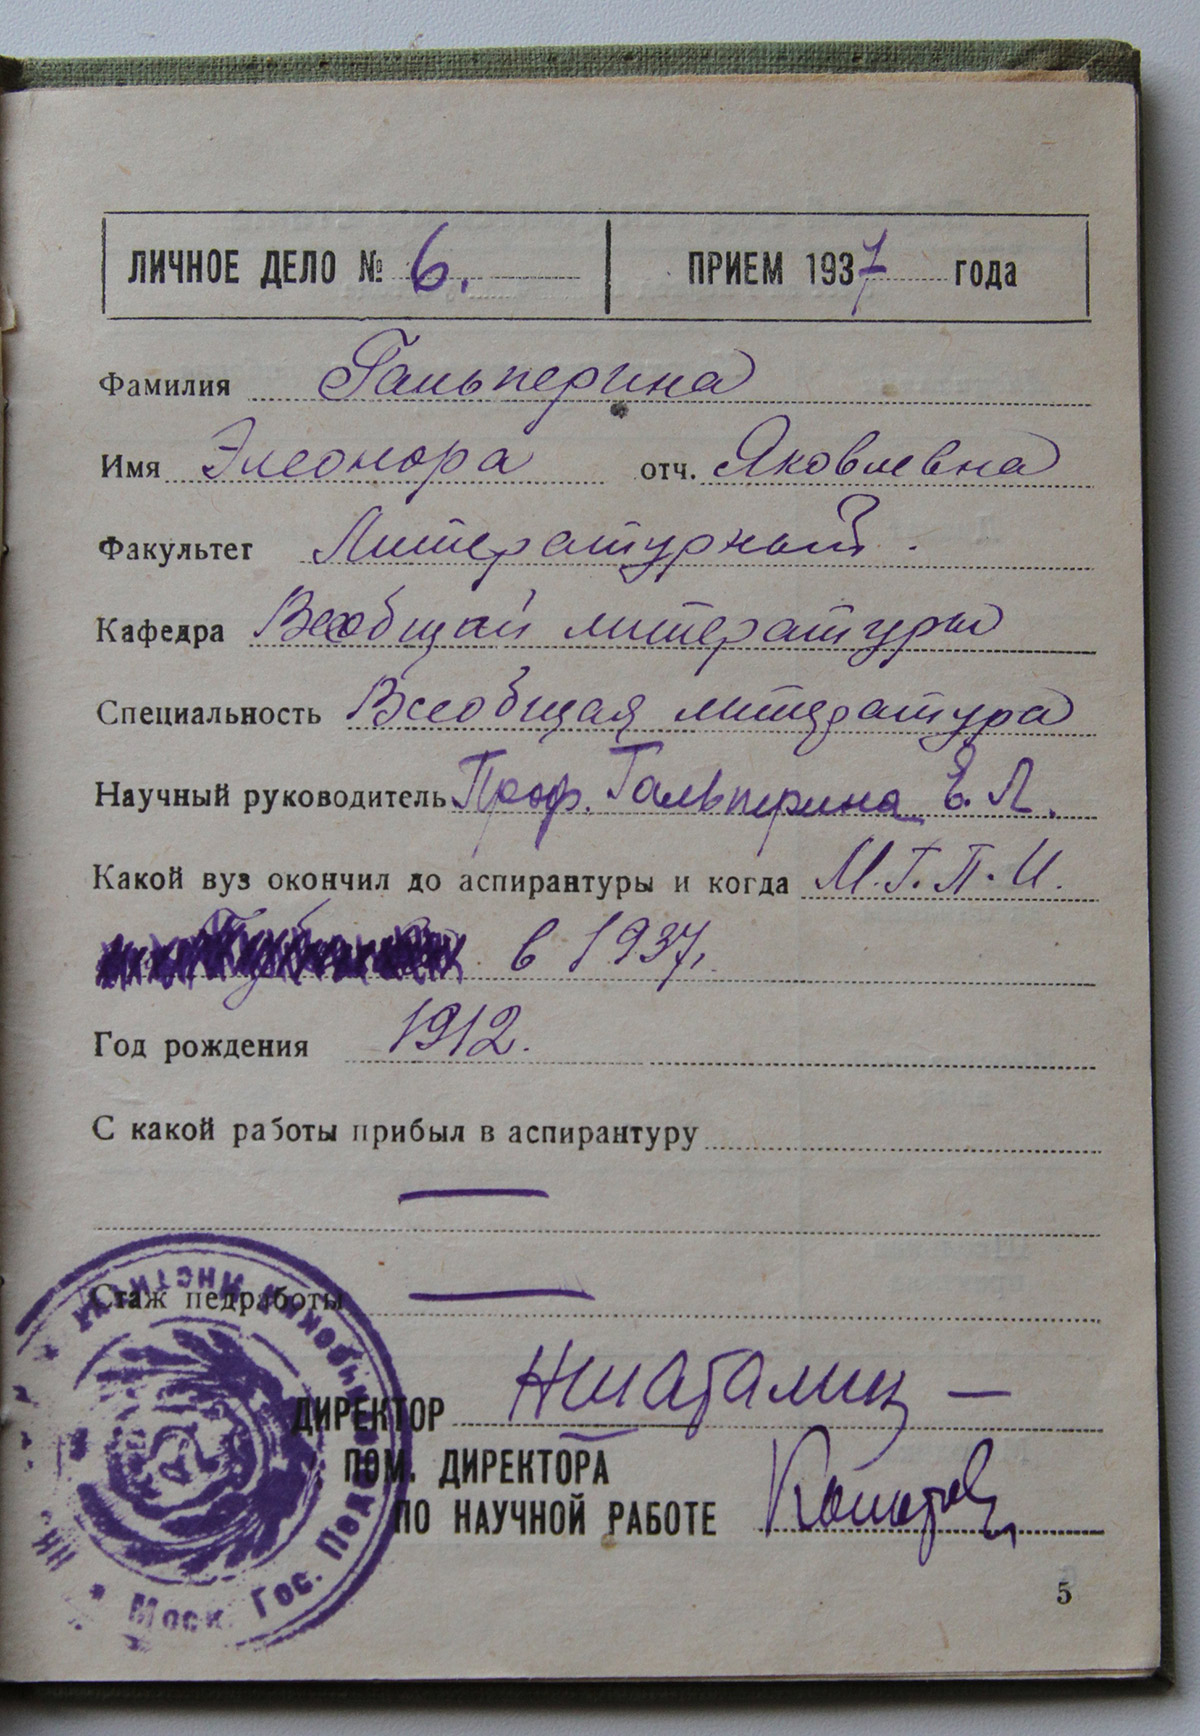 ЛИЧНОЕ ДЕЛО № 6. ПРИЕМ 1937 года
Фамилия Гальперина
Имя Элеонора отч. Яковлевна
Факультет Литературный.
Кафедра Всеобщей литературы
Специальность Всеобщая литература
Научный руководитель Проф. Гальперина Е. Л.
Какой вуз окончил до аспирантуры и когда М.Г.П.И.
в 1937,
Год рождения 1912.
С какой работы прибыл в аспирантуру
—
Стаж педработы —
ДИРЕКТОР
ПОМ. ДИРЕКТОРА
ПО НАУЧНОЙ РАБОТЕ
Моск. Гос. Педагог
5